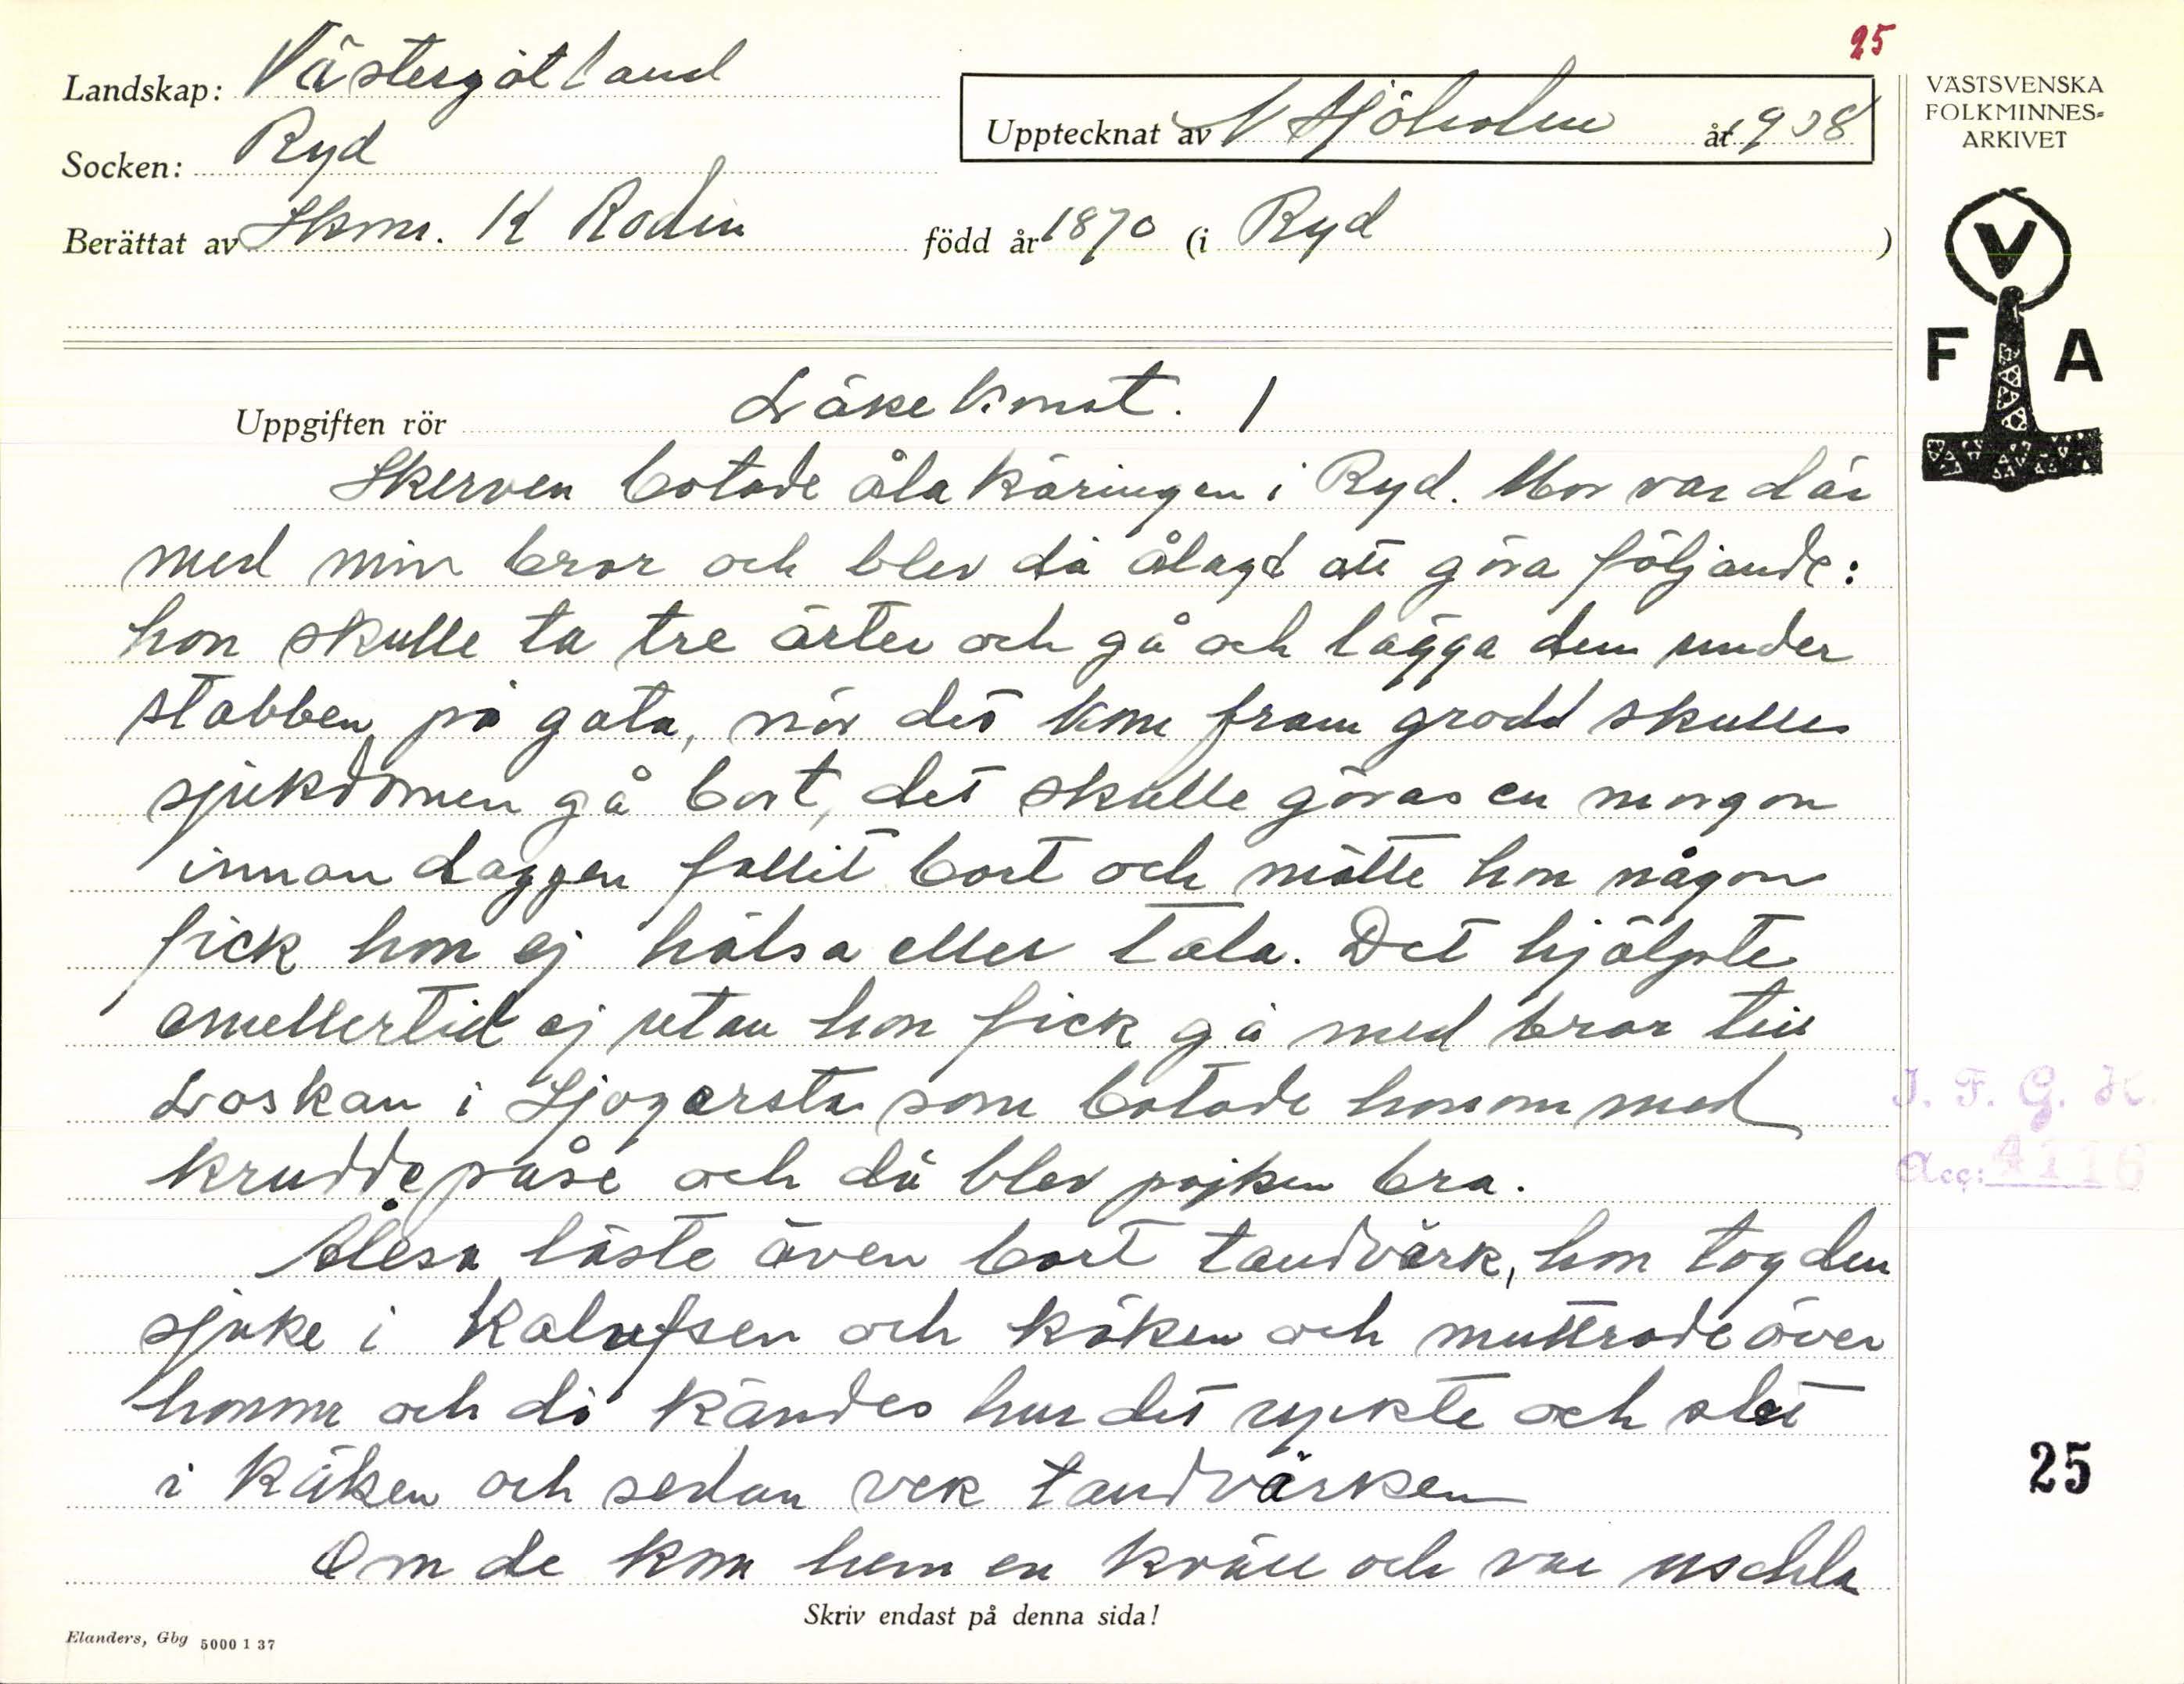 25
Landskap: Västergötland
Socken: Ryd
Upptecknat av N Sjöholm år 1938
Berättat av Hsm. K Rodin född år 1870 (i Ryd )
VÄSTSVENSKA
FOLKMINNES-
ARKIVET
V
F A
Uppgiften rör Läkekonst. 1
Skerven botade åla käringen i Ryd. Mor var där
med min bror och blev då ålagd att göra följande:
hon skulle ta tre ärter och gå och lägga dem under
stabben på gata, när det kom fram grodd skulle
sjukdomen gå bort, det skulle göras en morgon
innan daggen fallit bort och mötte hon någon
fick hon ej hälsa eller tala. Det hjälpte
emellertid ej utan hon fick gå med bror till
Loskan i Ljogarsta som botade honom med
kruddepåse och då blev pojken bra.
Ålesa läste även bort tandvärk, hon tog den
sjuke i Kalufsen och käken och muttrade över
honom och då kändes hur det ryckte och slet
i Käken och sedan vek tandvärken
Om de kom hem en kväll och var uschla
J. F. G. H.
Acc: 4116
25
Skriv endast på denna sida!
Elanders, Gbg 5000 1 37